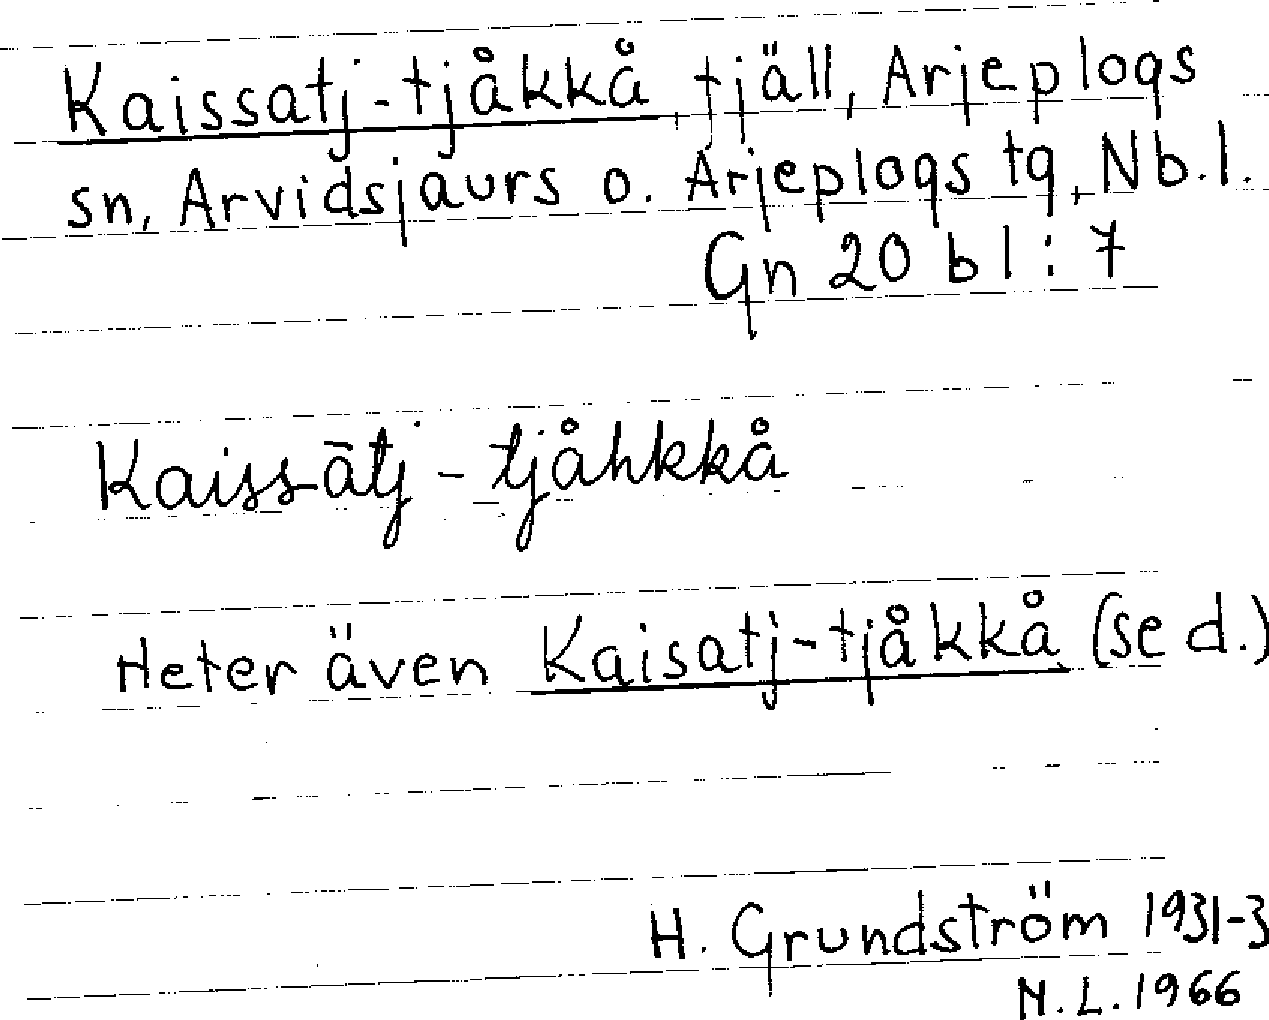 Kaissatj-tjåkkå, fjäll, Arjeplogs
sn, Arvidsjaurs o. Arjeplogs tg, Nb.l.
Gn 20 b l : 7
Kaissātj - tjåhkkå
Heter även Kaisatj-tjåkkå (se d.)
H. Grundström 1931-3
N.L. 1966